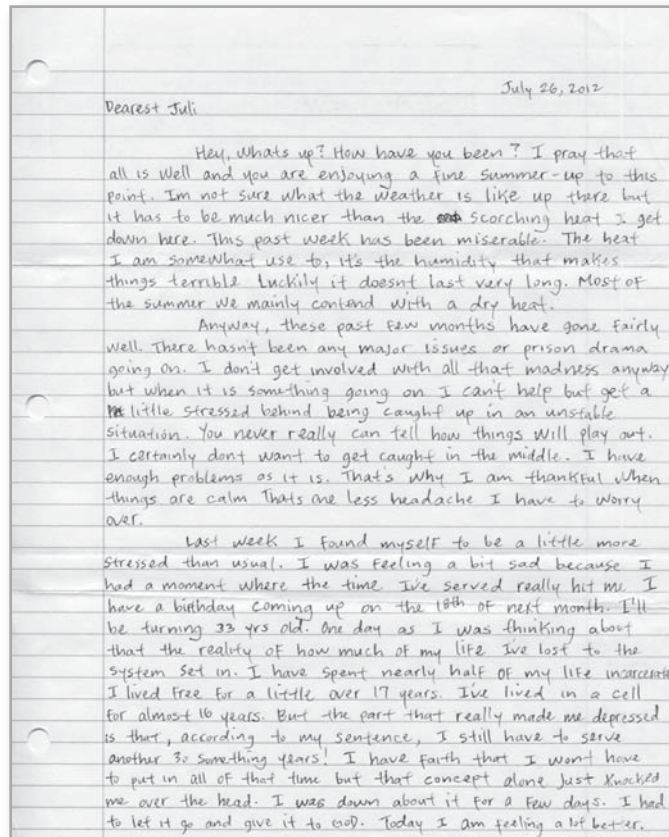 July 26, 2012
Dearest Juli
Hey, whats up? How have you been? I pray that
all is well and you are enjoying a fine summer-up to this
point. Im not sure what the weather is like up there but
it has to be much nicer than the scorching heat I get
down here. This past week has been miserable. The heat
I am somewhat use to, it's the humidity that makes
things terrible Luckily it doesnt last very long. Most of
the summer we mainly contend with a dry heat.
Anyway, these past few months have gone fairly
well. There hasn't been any major issues or prison drama
going on. I don't get involved with all that madness anyway
but when it is something going on I can't help but get a
little stressed behind being caught up in an unstable
situation. You never really can tell how things will play out.
I certainly dont want to get caught in the middle. I have
enough problems as it is. That's why I am thankful when
things are calm Thats one less headache I have to worry
over.
Last week I found myself to be a little more
stressed than usual. I was feeling a bit sad because I
had a moment where the time I've served really hit me. I
have a birthday coming up on the 18th of next month. I'll
be turning 33 yrs old. One day as I was thinking about
that the reality of how much of my life I've lost to the
system set in. I have spent nearly half of my life incarcerate
I lived free for a little over 17 years. I've lived in a cell
for almost 16 years. But the part that really made me depressed
is that, according to my sentence, I still have to serve
another 30 something years! I have faith that I wont have
to put in all of that time but that concept alone just knocked
me over the head. I was down about it for a few days. I had
to let it go and give it to GOD. Today I am feeling a lot better.